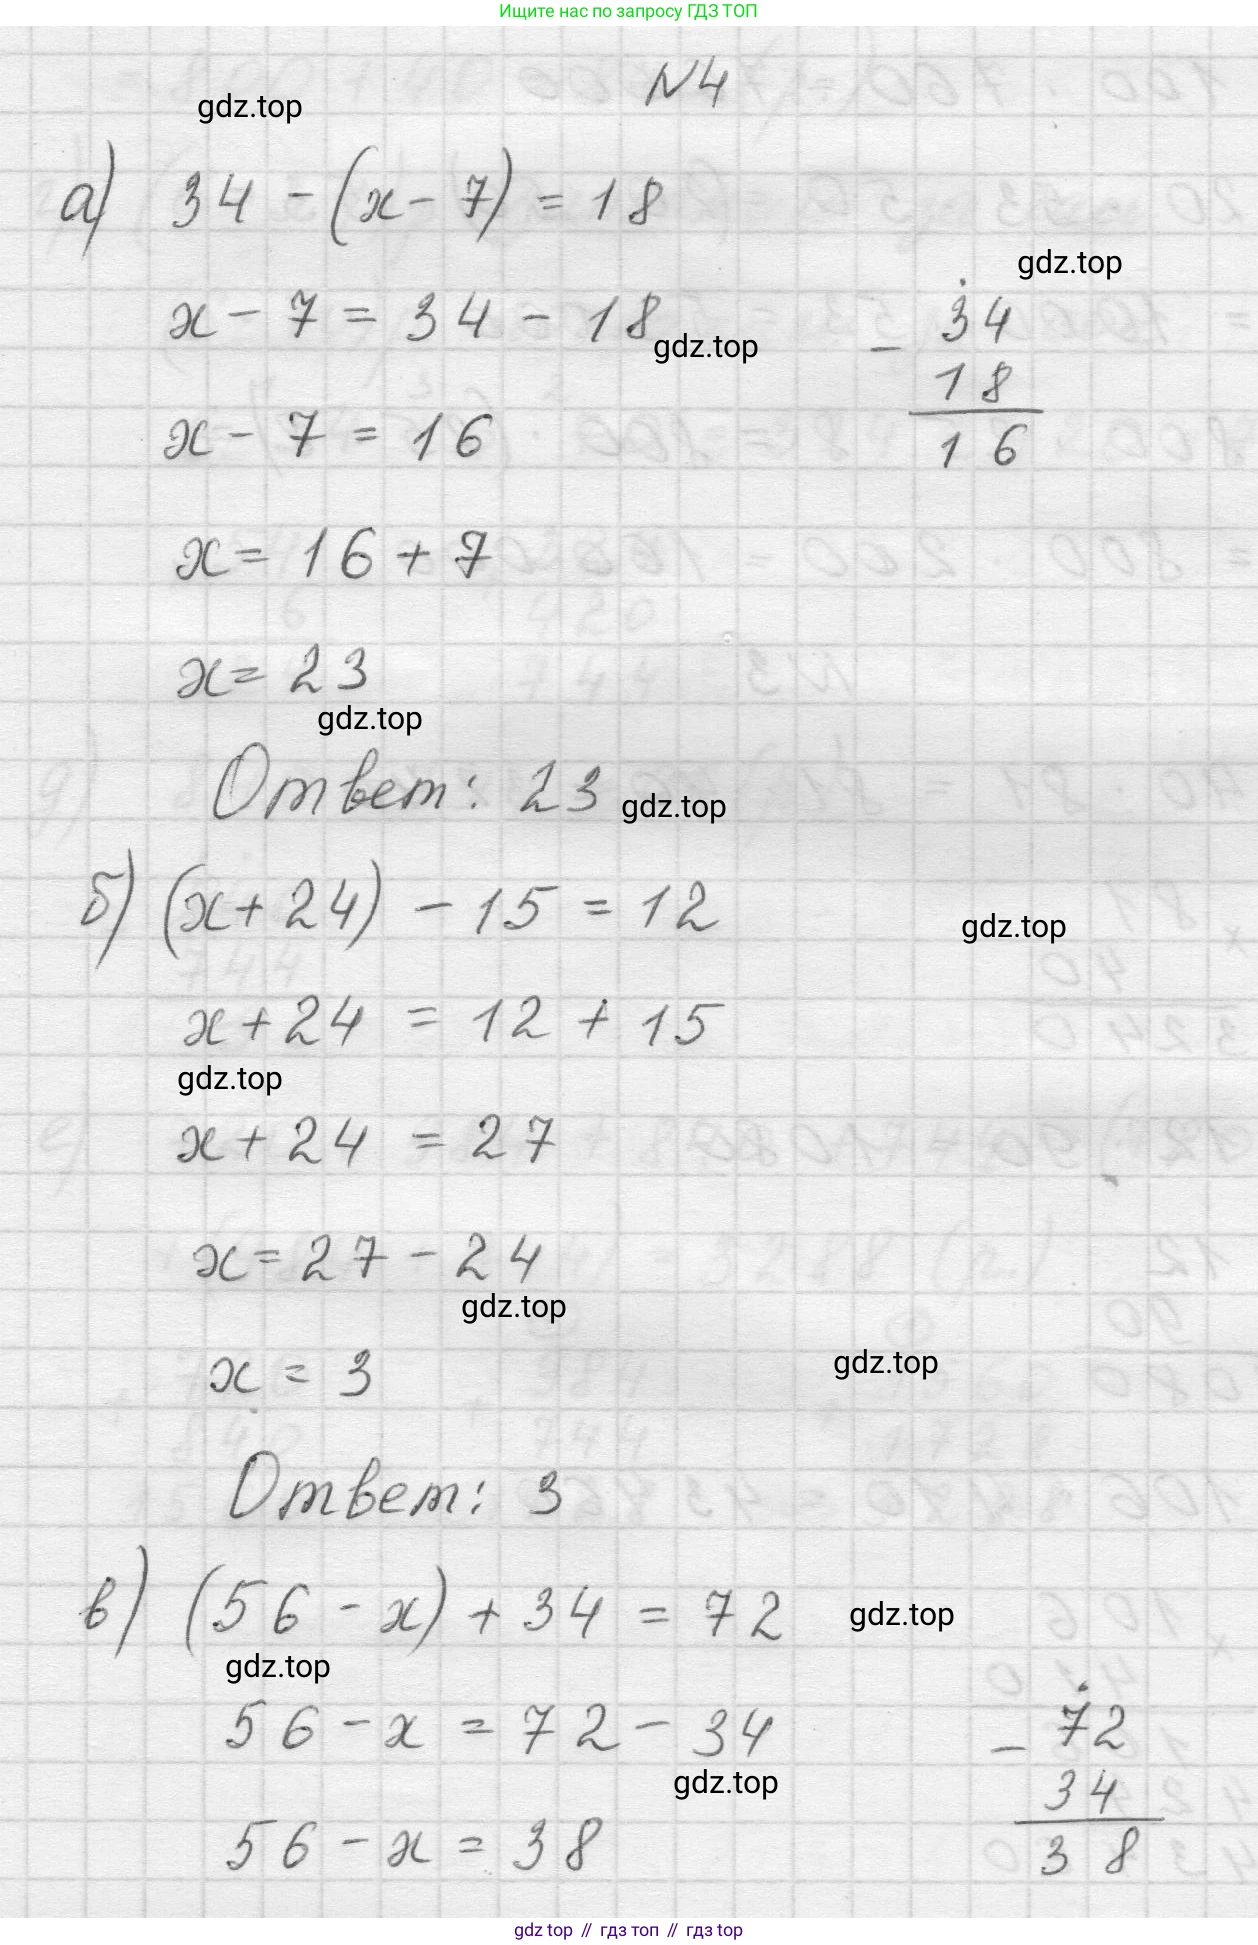 Ищите нас по запросу ГДЗ ТОП
N4
gdz.top
а) 34 - (x - 7) = 18
gdz.top
x - 7 = 34 - 18
gdz.top
- 34
18
16
x - 7 = 16
x = 16 + 7
x = 23
gdz.top
Ответ: 23
gdz.top
б) (x + 24) - 15 = 12
gdz.top
x + 24 = 12 + 15
gdz.top
x + 24 = 27
x = 27 - 24
gdz.top
x = 3
gdz.top
Ответ: 3
в) (56 - x) + 34 = 72
gdz.top
gdz.top
56 - x = 72 - 34
gdz.top
- 72
34
38
56 - x = 38
gdz top // гдз топ // гдз top